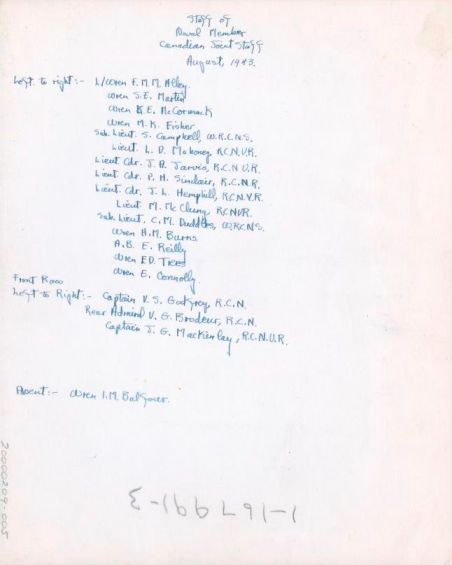 Staff of
Naval Member
Canadian Joint Staff
August, 1943.
Left to right:- L/Wren F.M.M. Alley.
Wren S.E. Martin
Wren K.E. McCormack
Wren M.K. Fisher
Sub. Lieut. S. Campbell, W.R.C.N.S.
Lieut. L. D. Mahoney, R.C.N.V.R.
Lieut Cdr. J. A. Jarvis, R.C.N.V.R.
Lieut Cdr. P. H. Sinclair, R.C.N.R.
Lieut Cdr. J. L. Hemphill, R.C.N.V.R.
Lieut. M. McClung, RCNVR.
Sub. Lieut. C.M. Daddles, W.R.C.N.S.
Wren H.M. Burns
A.B. E. Reilly
Wren F.D. Trees
Wren E. Connolly
Front Row
Left to Right:- Captain V. S. Godfrey, R.C.N.
Rear Admiral V. G. Brodeur, R.C.N.
Captain J. G. MacKinlay, R.C.N.V.R.
Absent:- Wren I.M. Balfour.
1-167991-3
20000209-005